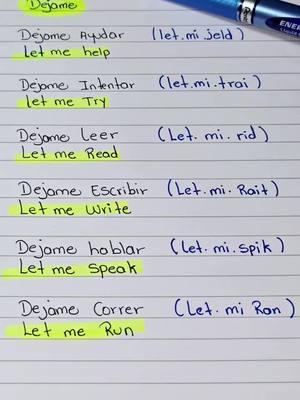 Dejame
Dejame Ayudar (let.mi.jeld)
Let me help
Dejame Intentar (let.mi.trai)
let me Try
Dejame Leer (Let. mi. rid)
Let me Read
Dejame Escribir (Let. mi. Rait)
Let me Write
Dejame hablar (Let. mi. spik)
Let me Speak
Dejame Correr (Let. mi Ran)
Let me Run